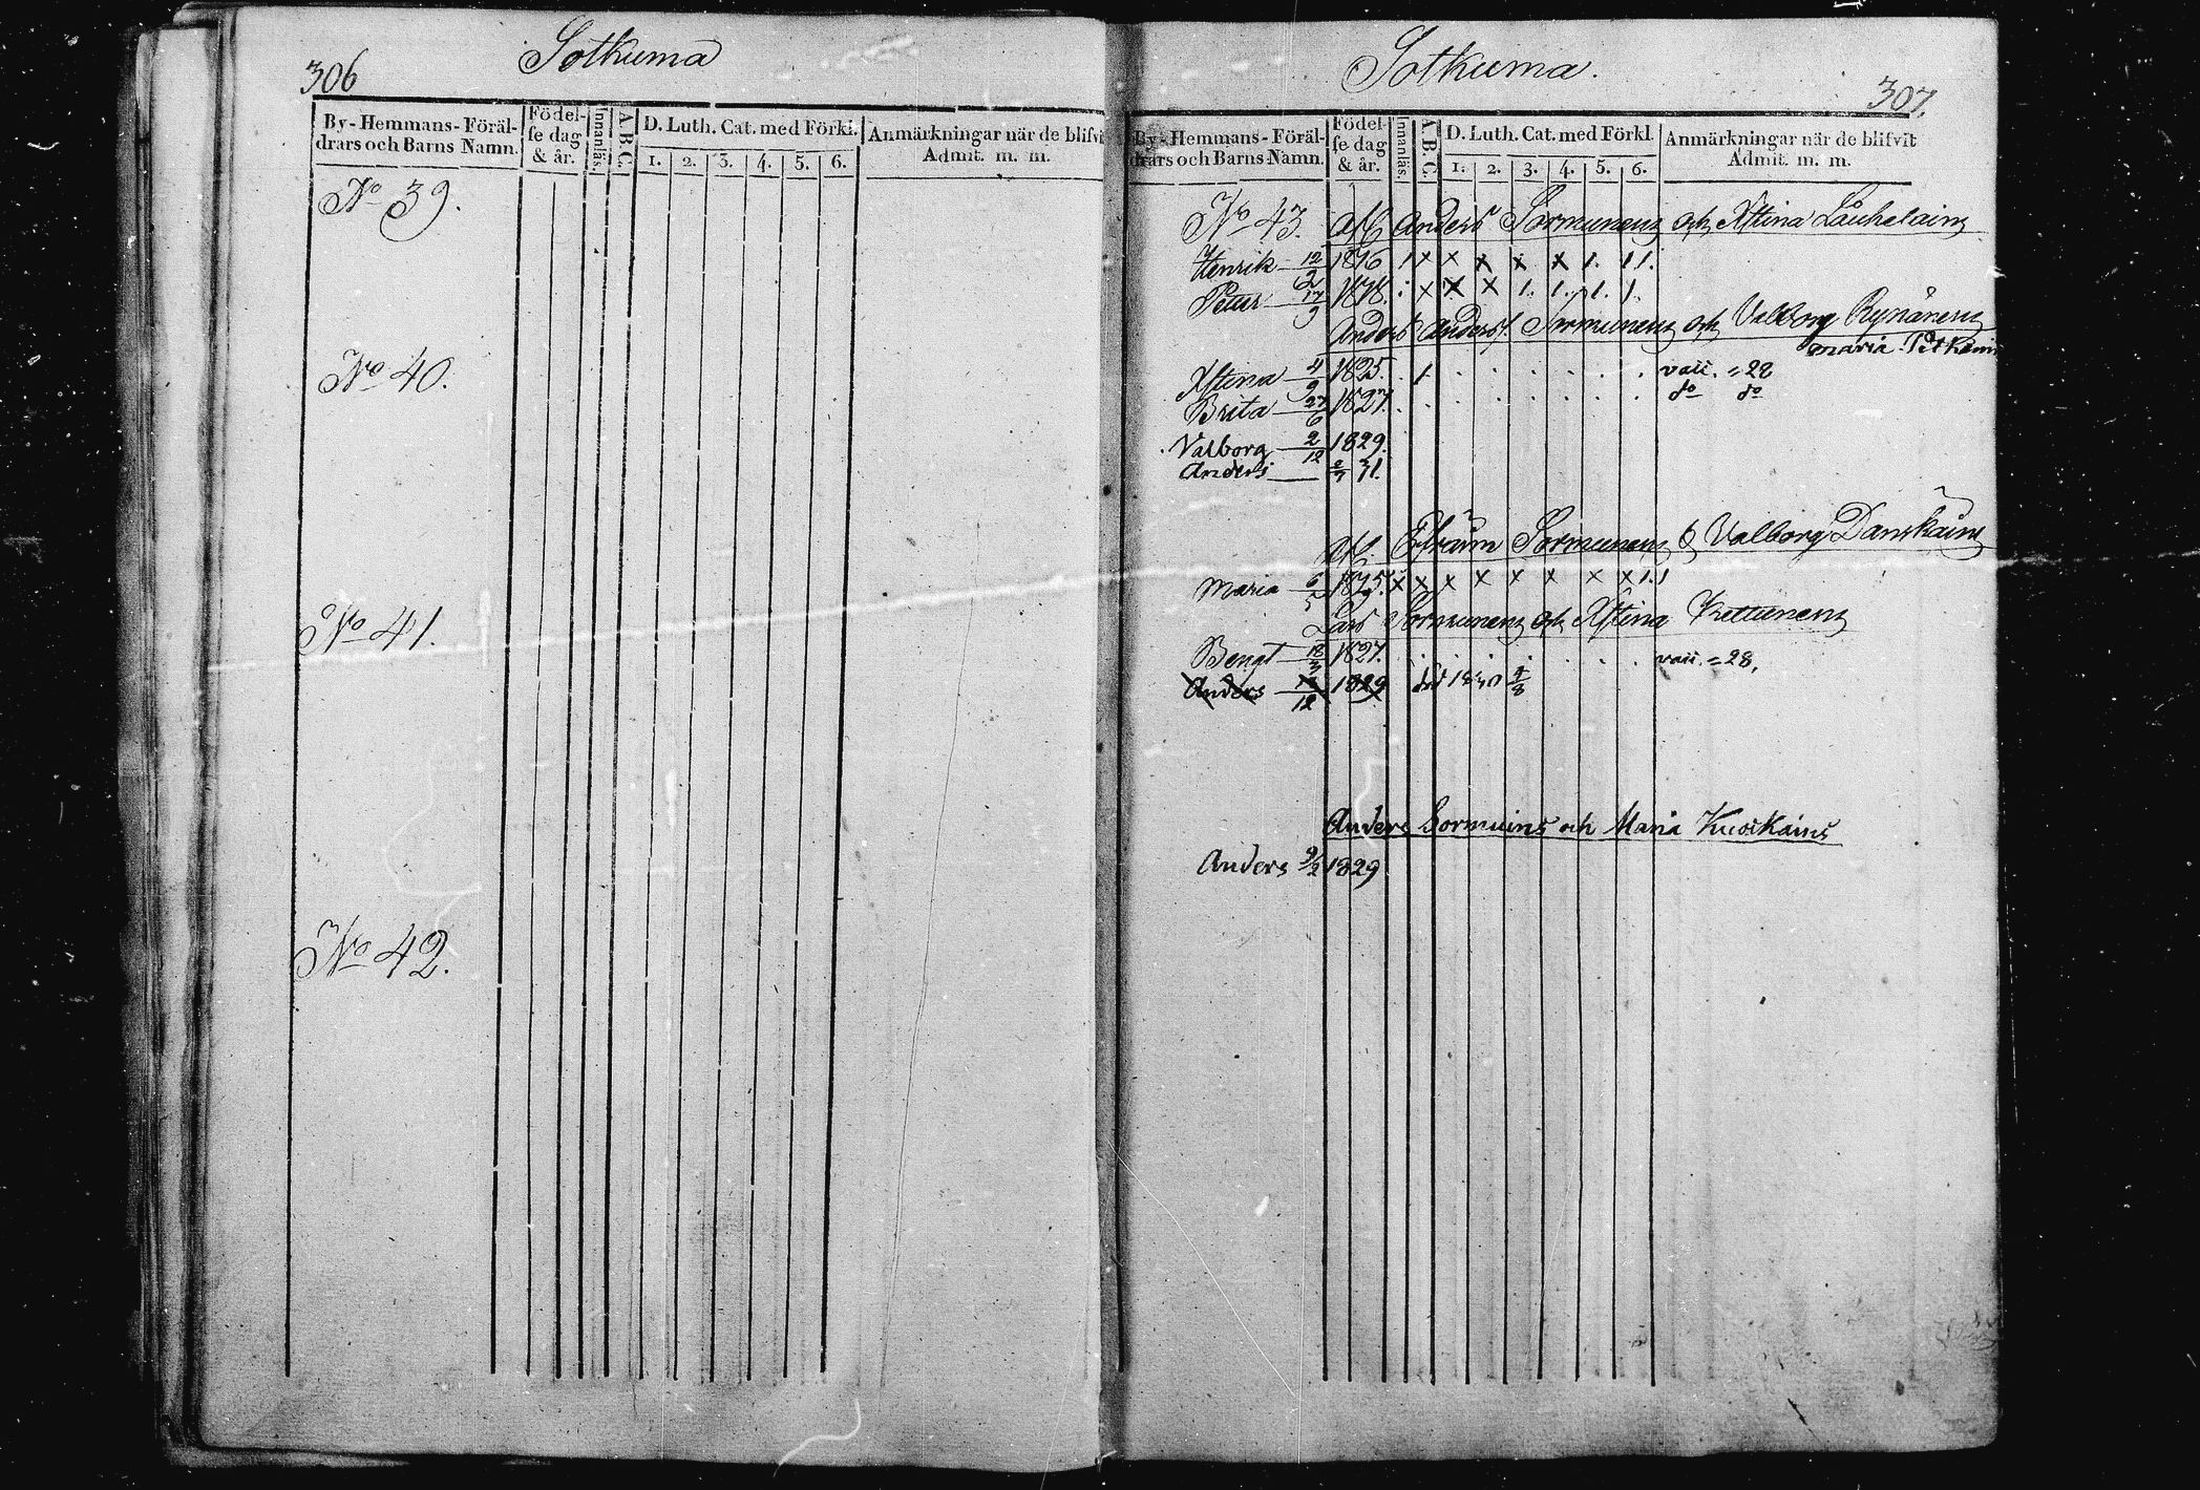 306
Sotkuma
By-Hemmans-Föräl-
drars och Barns Namn.
Födel-
se dag
& år.
Innanläs.
A.B.C.
D. Luth. Cat. med Förkl.
1. 2. 3. 4. 5. 6.
Anmärkningar när de blifvit
Admit. m. m.
No 39.
No 40.
No 41.
No 42.
Sotkuma.
307.
By-Hemmans-Föräl-
drars och Barns Namn.
Födel-
se dag
& år.
Innanläs.
A.B.C.
D. Luth. Cat. med Förkl.
1. 2. 3. 4. 5. 6.
Anmärkningar när de blifvit
Admit. m. m.
No 43. Anders Sormunens och Xstina
Henrik 12/2 1816 1 x x x x x 1. 1 1.
Petter 17/9 1818. : x x x 1. 1. 1. 1.
Anders Anderss. Sormunens och Valborg Rynänens
Maria
Xstina 4/9 1825. . 1 . . . . . . . vacc. =28
Brita 27/6 1827. . . . . . . . do do
Valborg 2/12 1829.
Anders 31.
Efraim Sormunens & Valborg Danskains
Maria 6/5 1815. x x x x x x x x 1.1
Lars Sormunens och Xstina Kettunens
Bengt 18/3 1827. . . . . . . . vacc. =28.
Anders 12 1829 död 1830 4/8
Anders Sormuins och Maria Kuoskains
Anders 9/2 1829